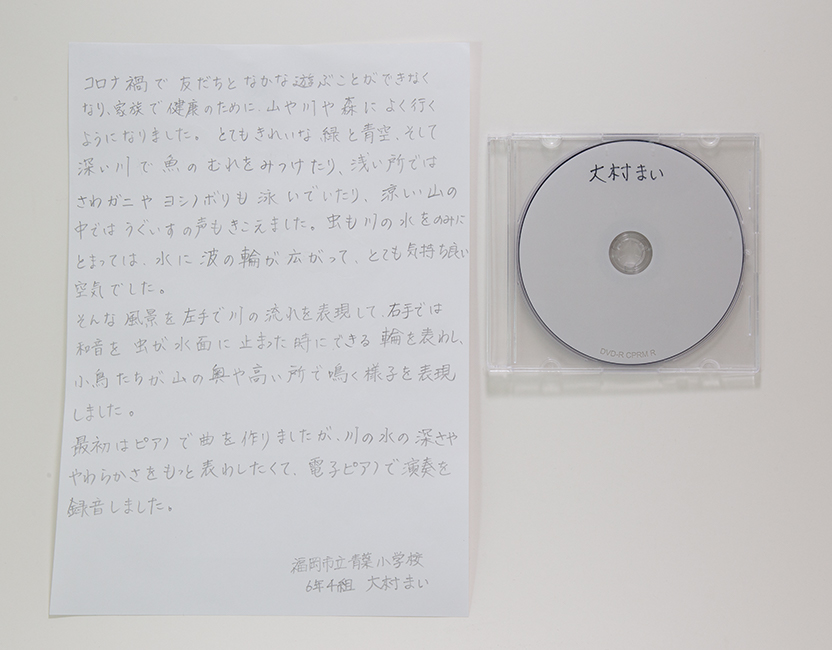 コロナ禍で友だちとなかな遊ぶことができなく
なり、家族で健康のために、山や川や森によく行く
ようになりました。とてもきれいな緑と青空、そして
深い川で魚のむれをみつけたり、浅い所では
さわガニやヨシノボリも泳いでいたり、涼しい山の
中ではうぐいすの声もきこえました。虫も川の水をのみに
とまっては、水に波の輪が広がって、とても気持ち良い
空気でした。
そんな風景を左手で川の流れを表現して、右手では
和音を虫が水面に止まった時にできる輪を表わし、
小鳥たちが山の奥や高い所で鳴く様子を表現
しました。
最初はピアノで曲を作りましたが、川の水の深さや
やわらかさをもっと表わしたくて、電子ピアノで演奏を
録音しました。
福岡市立青葉小学校
6年4組 大村まい
大村まい
DVD-R CPRM R